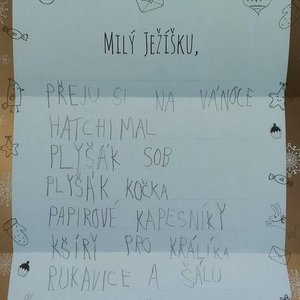 MILÝ JEŽÍŠKU,
PŘEJU SI NA VÁNOCE
HATCHIMAL
PLYŠÁK SOB
PLYŠÁK KOČKA
PAPIROVÉ KAPESNÍKY
KŠÍRY PRO KRÁLÍKA
RUKAVICE A ŠÁLU